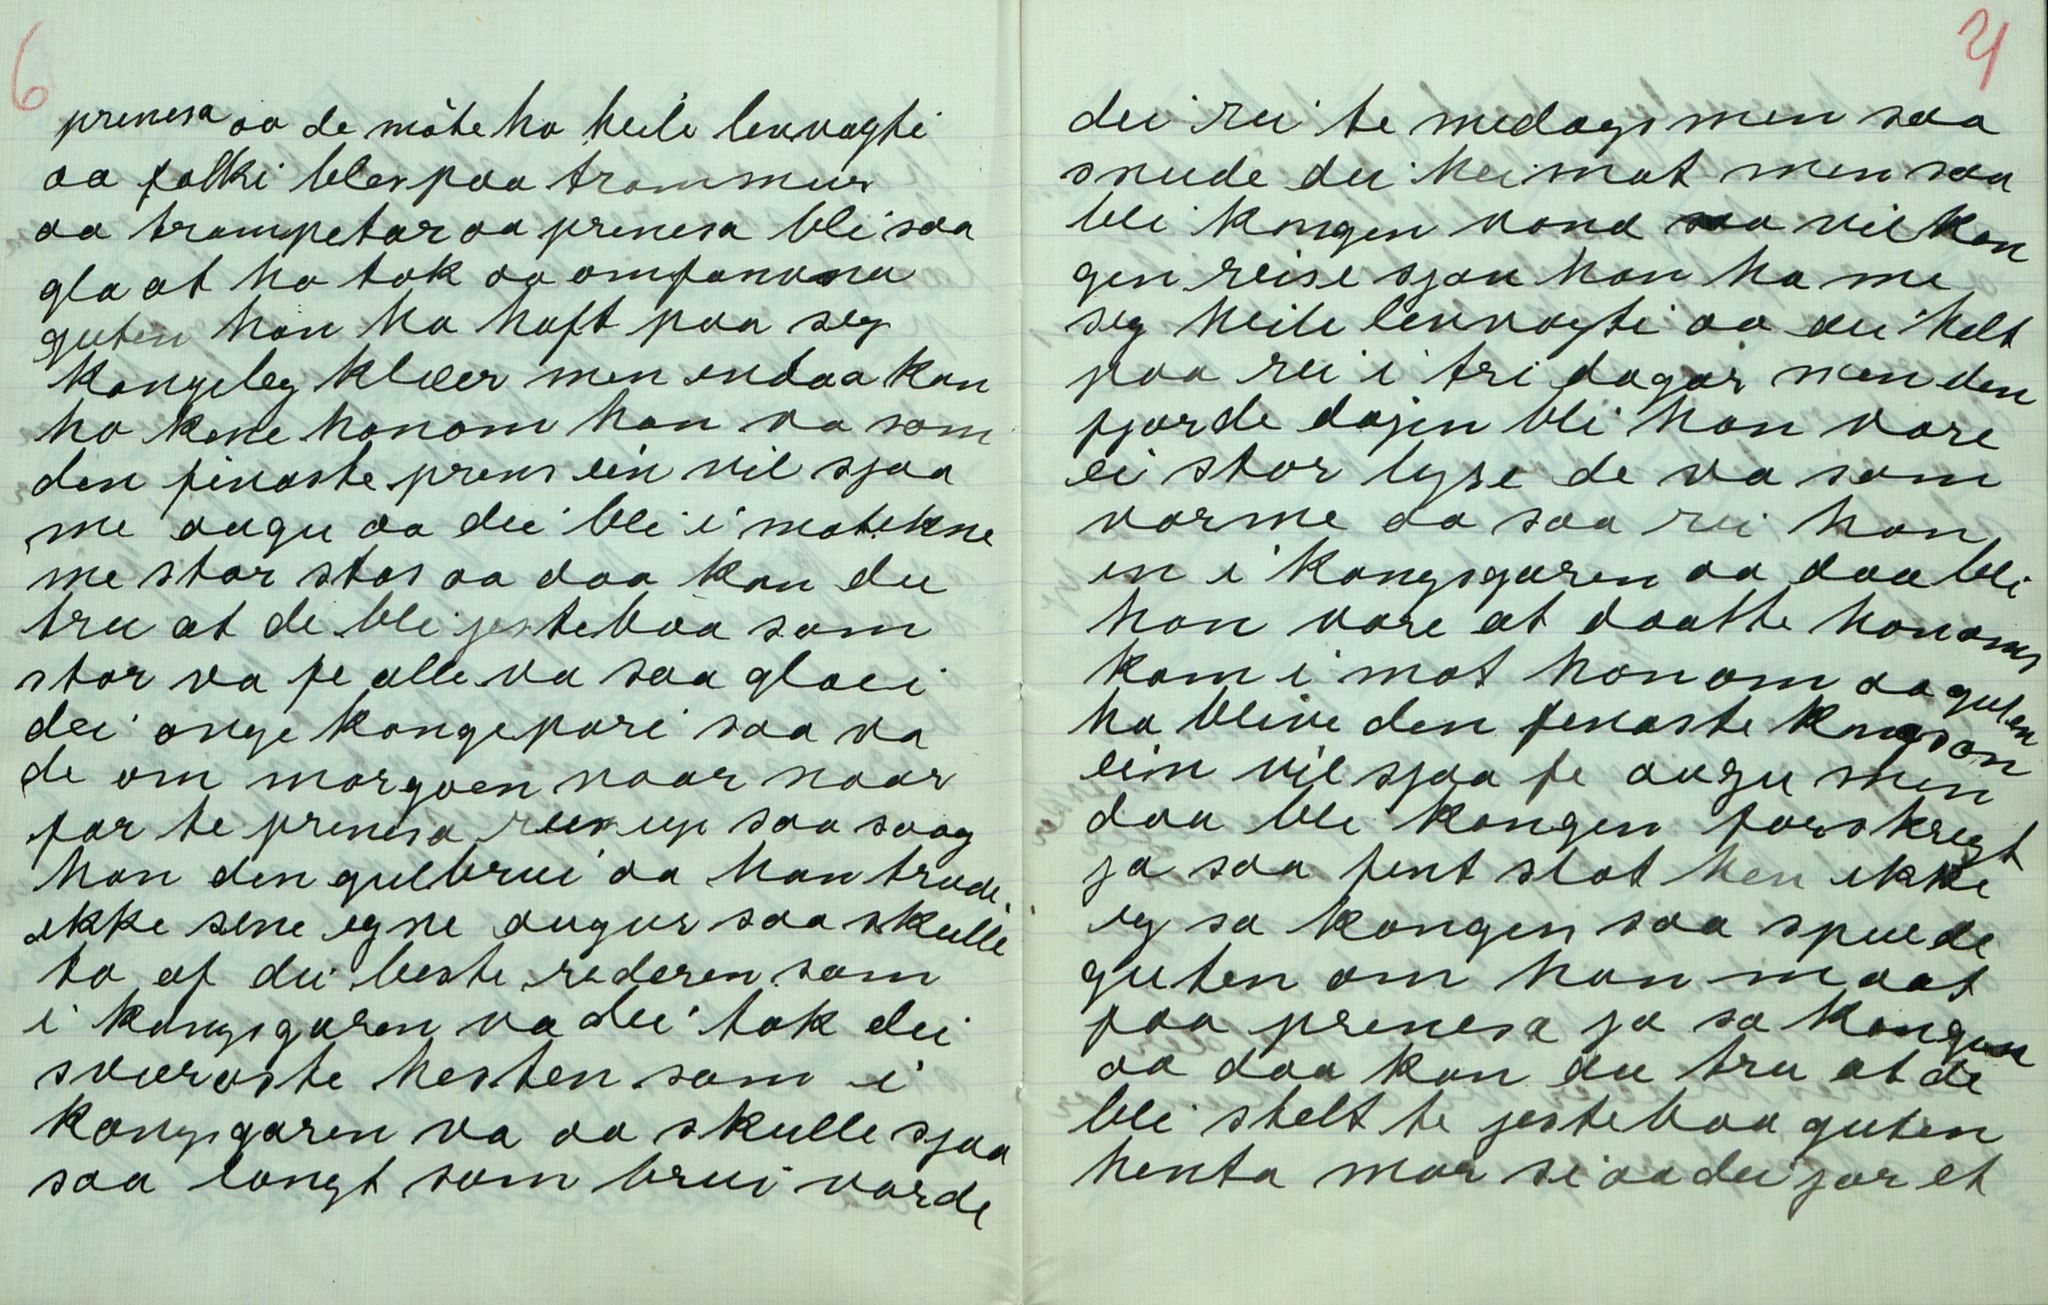 6
prenesa oa de møte ho heile levvagti
oa folki bles paa trommur
oa trompetar oa prenesa bli saa
gla at ho tok oa omfavna
guten han ha haft paa seg
kongeleg klæer men endaa kan
ho kene honom han va som
den finaste prens ein vil sjaa
me augu oa dei bli i motekne
me stor stas oa daa kan du
tru at de bli jestebaa som
stor va fe alle va saa glae i
dei onge kongepari saa va
de om morgoen naar naar
far te prenesa reis up saa saag
han den gulbrui oa han trude
ikke sine egne augur saa skulle
to af dei beste rederen som
i kongsgaren va dei tok dei
sværaste hesten som i
kongsgaren va oa skulle sjaa
saa langt som brui varde
7
dei rei te medags men saa
snude dei heimat men saa
bli kongen vond saa vil kon
gen reise sjøu han ha me
seg heile levvagti oa dei helt
paa rei i tri dagar men den
fjorde dajen bli han vare
ei stor lyse de va som
varme oa saa rei han
in i kongsgaren oa daa bli
han vare at daatte honoms
kom i mot honom oa guten
ha blive den fenaste kongson
ein vil sjaa fe augu men
daa bli kongen forskregt
ja saa fent slot hev ikke
eg sa kongen saa spurde
guten om han maat
faa prenesa ja sa kongen
oa daa kan du tru at de
bli stelt te jestebaa guten
henta mor si oa dei jor et